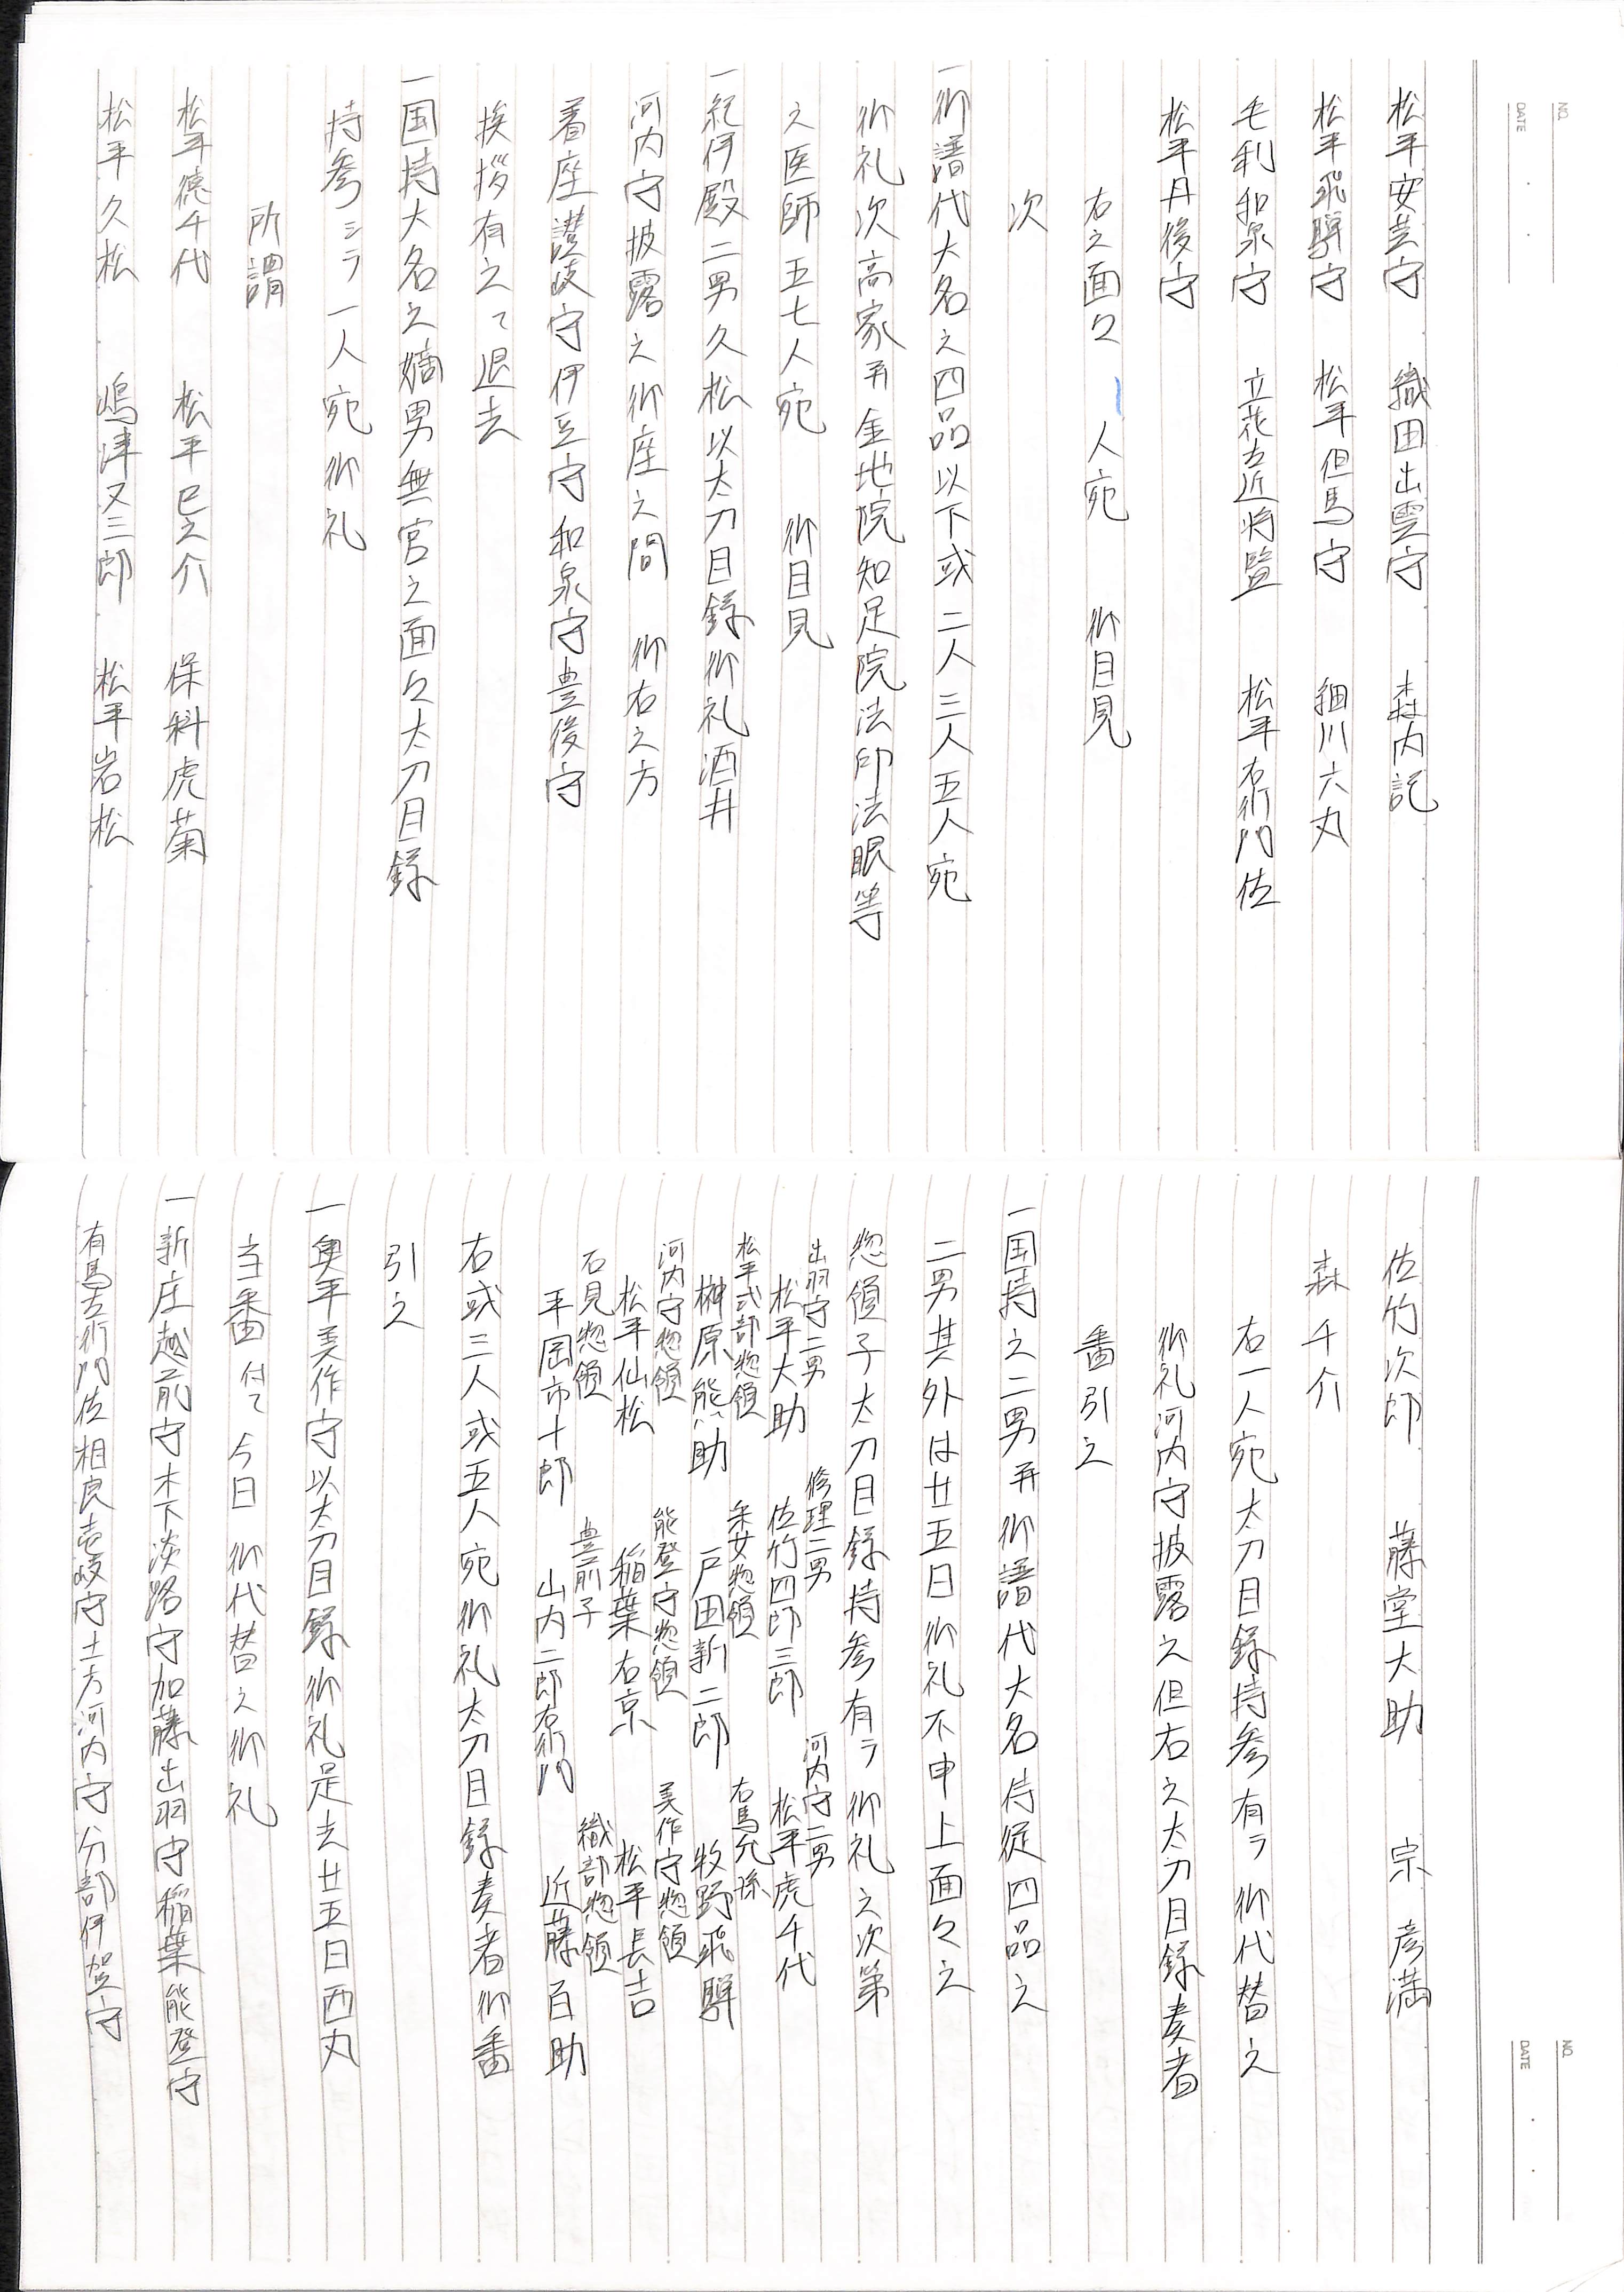 NO.
DATE
松平安芸守　織田出雲守　森内記
松平飛騨守　松平但馬守　細川六丸
毛利和泉守　立花左近将監　松平右衛門佐
松平丹後守
右之面々一人宛　御目見
次
一御譜代大名之四品以下或二人三人五人宛
御礼次高家并金地院知足院法印法眼等
之医師五七人宛　御目見
一紀伊殿二男久松以太刀目録御礼酒井
河内守披露之御座之間　御右之方
着座讃岐守伊豆守和泉守豊後守
挨拶有之て退去
一国持大名之嫡男無官之面々太刀目録
持参シテ一人宛御礼
所謂
松平徳千代　松平巳之介　保科虎菊
松平久松　嶋津又三郎　松平岩松
NO.
DATE
佐竹次郎　藤堂大助　宗彦満
森千介
右一人宛太刀目録持参有テ御代替之
御礼河内守披露之但右之太刀目録奏者
番引之
一国持之二男并御譜代大名侍従四品之
二男其外は廿五日御礼不申上面々之
惣領子太刀目録持参有テ御礼之次第
出羽守二男　修理二男　河内守二男
松平大助　佐竹四郎三郎　松平虎千代
松平式部惣領　采女惣領　右馬允孫
榊原熊助　戸田新二郎　牧野飛騨
河内守惣領　能登守惣領　美作守惣領
松平仙松　稲葉右京　松平長吉
石見惣領　豊前子　織部惣領
平岡市十郎　山内二郎右衛門　近藤百助
右或三人或五人宛御礼太刀目録奏者御番
引之
一奥平美作守以太刀目録御礼是去廿五日西丸
当番付て今日御代替之御礼
一新庄越前守木下淡路守加藤出羽守稲葉能登守
有馬左衛門佐相良壱岐守土方河内守分部伊賀守